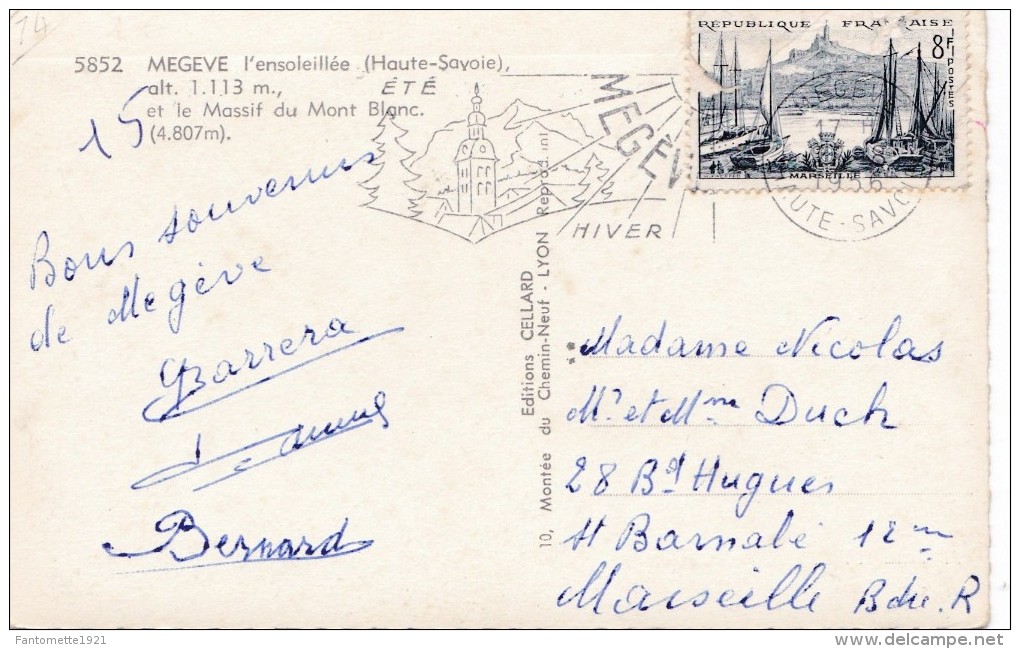 14
5852 MEGEVE l'ensoleillée (Haute-Savoie),
alt. 1.113 m.,
et le Massif du Mont Blanc.
(4.807m).
15
ÉTÉ
MEGÈV
HIVER
RÉPUBLIQUE FRANÇAISE
8F
POSTES
MARSEILLE
17
1956
HAUTE-SAVOIE
Bons souvenirs
de Megève
Barrera
Bernard
Editions CELLARD
10, Montée du Chemin-Neuf - LYON Reprod. int
Madame Nicolas
Mr et Mme Duch
28 Bd Hugues
St Barnabé 12 me
Marseille Bdu. R
Fantomette1921
delcampe.net